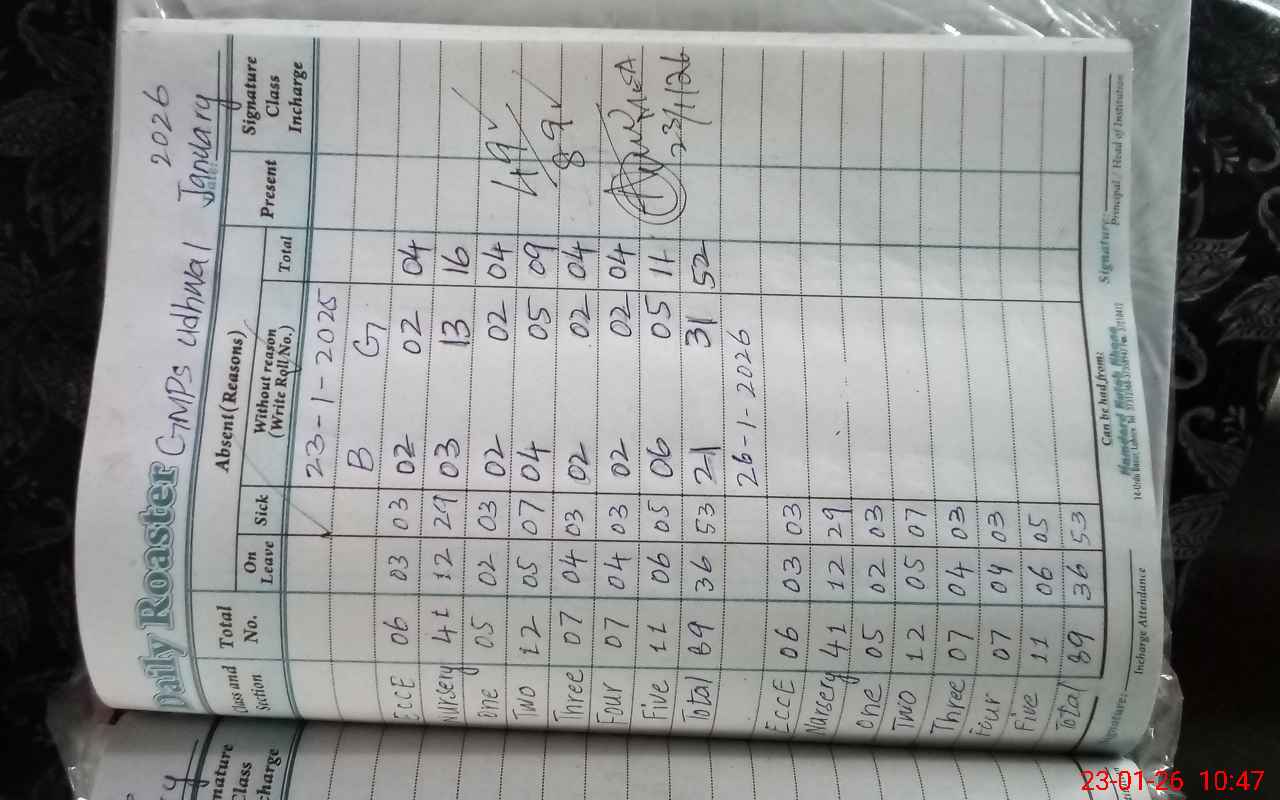 Daily Roaster GMPS Udhwal January 2026
Class and Section Total No. Absent (Reasons) Present Signature Class Incharge
On Leave Sick Without reason (Write Roll No.) Total
23-1-2025
B G
EccE 06 03 03 02 02 04
Nursery 41 12 29 03 13 16
One 05 02 03 02 02 04
Two 12 05 07 04 05 09
49
Three 07 04 03 02 02 04
89
Four 07 04 03 02 02 04
Five 11 06 05 06 05 11
Total 89 36 53 21 31 52
23/1/26
26-1-2026
EccE 06 03 03
Nursery 41 12 29
One 05 02 03
Two 12 05 07
Three 07 04 03
Four 07 04 03
Five 11 06 05
Total 89 36 53
Can be had from:
Signature: Incharge Attendance Signature: Principal / Head of Institution
nature
Class
charge
23-01-26 10:47